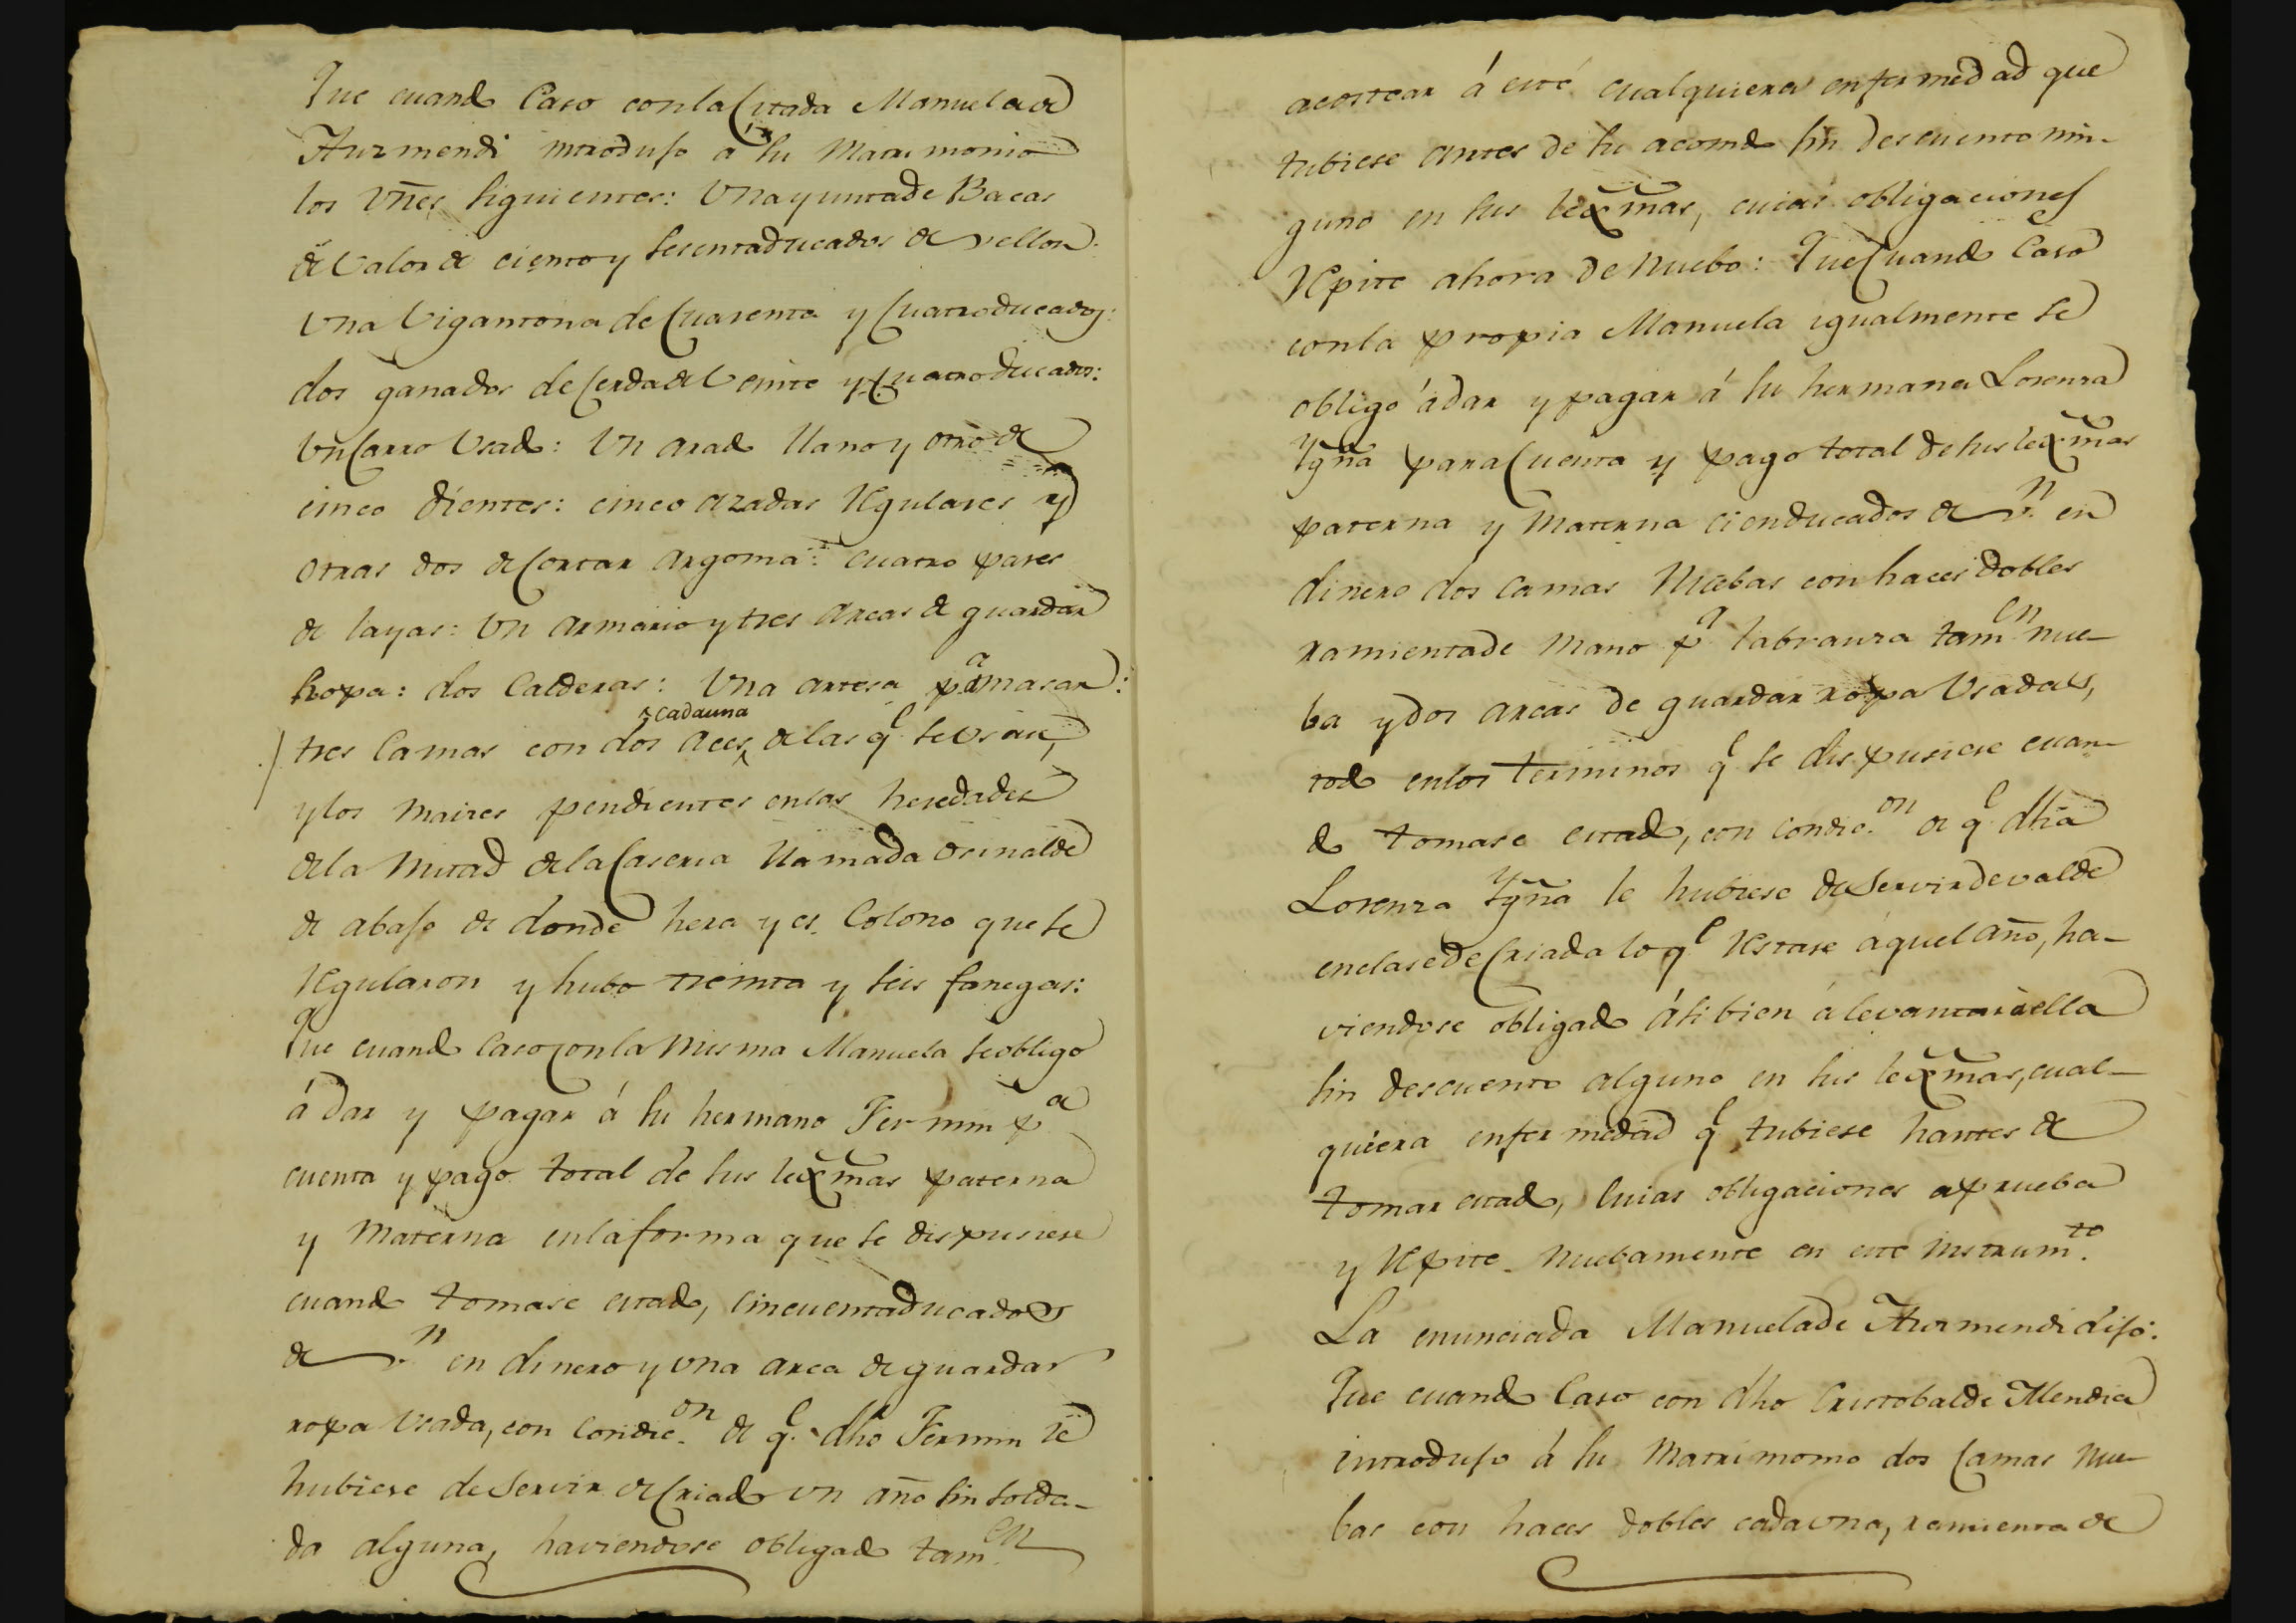 Que cuando Caso con la Citada Manuela de
Yturmendi introdujo a su Matrimonio
los Vñes siguientes: Una yunta de Bacas
de Valor de ciento y sesenta ducados de vellon:
Una Vigantona de Cuarenta y Cuatro ducados:
dos ganados de Cerda de Veinte y Cuatro ducados:
Un Carro Usado: Un arado llano y otro de
cinco dientes: cinco azadas Regulares y
otras dos de Cortar argoma: cuatro pares
de layas: Un armario y tres arcas de guardar
Ropa: dos Calderas: Una artesa pª amasar:
tres Camas con dos aces ^cada una de las q.e se usan,
y los Maices pendientes en las heredades
de la Mitad de la Caseria llamada Osinalde
de abajo de donde hera y es Colono que se
Regularon y hubo treinta y seis fanegas:
Que cuando Caso con la Misma Manuela se obligo
á dar y pagar á su hermano Fermin pª
cuenta y pago total de sus lexmas paterna
y Materna en la forma que se dispusiese
cuando tomase estado, cincuenta ducados
de v.n en dinero y una arca de guardar
ropa usada, con condic.on de q.e dho Fermin le
hubiese de Servir de Criado un año sin solda-
da alguna, haviendose obligado tam.en
acostear á este cualquiera enfermedad que
tubiese antes de su acomdo sin descuento nin-
guno en sus lexmas, cuias obligaciones
Repite ahora de Nuebo: Que Cuando Caso
con la propia Manuela igualmente se
obligo á dar y pagar á su hermana Lorenza
Ygña para Cuenta y pago total de sus lexmas
paterna y Materna cien ducados de v.n en
dinero dos Camas Nuebas con haces dobles
ramienta de Mano pª labranza tam.en nue-
ba y dos arcas de guardar ropa Usadas,
todo en los terminos q.e se dispusiese cuan-
do tomase estado, con condic.on de q.e dha
Lorenza Ygña le hubiese de Servir de valde
en clase de Criada lo q.e Restase aquel año, ha-
viendose obligado asi bien á levantar á ella
sin descuento alguno en sus lexmas, cual-
quiera enfermedad q.e tubiese hantes de
tomar estado, cuias obligaciones aprueba
y Repite Nuebamente en este instrum.to
La enunciada Manuela de Yturmendi dijo:
Que cuando Caso con dho Cristobal de Mendia
introdujo á su Matrimonio dos Camas Nue-
bas con haces dobles cada una, ramienta de